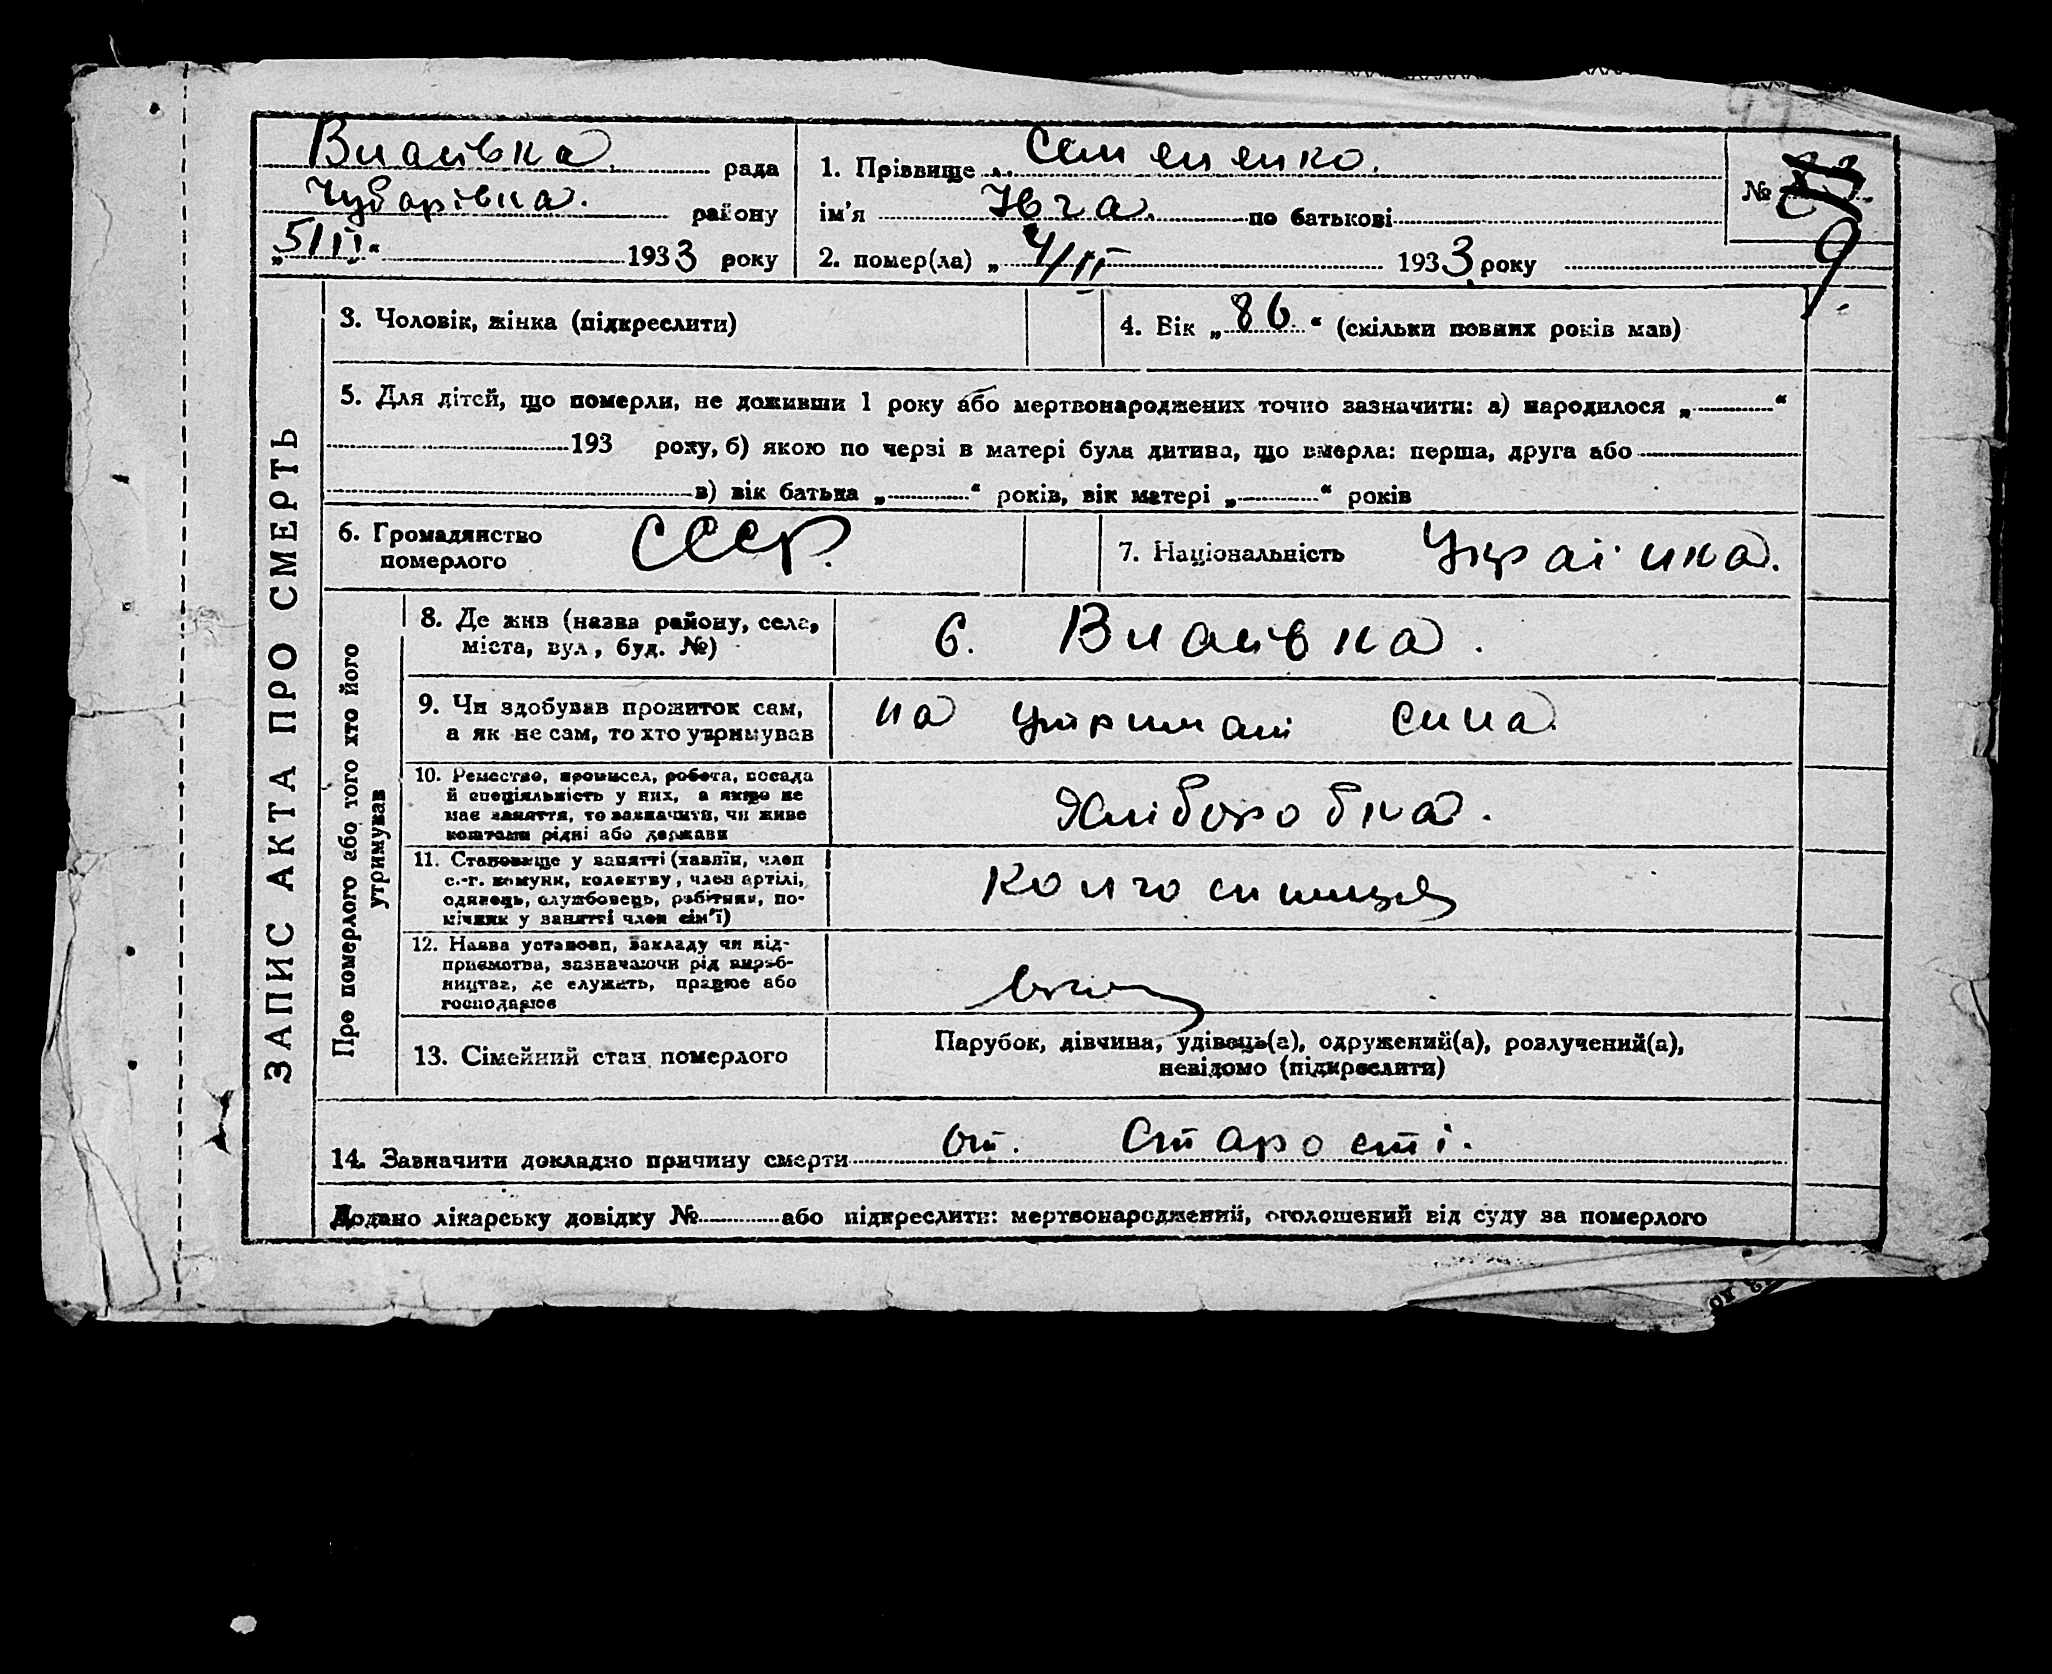 рада
Чубарівка. району
„5/II“ 1933 року
1. Прізвище Семененко.
ім'я Ївга. по батькові
2. помер(ла) „4/II 1933 року
№
9
ЗАПИС АКТА ПРО СМЕРТЬ
3. Чоловік, жінка (підкреслити)
4. Вік „86“ (скільки повних років мав)
5. Для дітей, що померли, не доживши 1 року або мертвонароджених точно зазначити: а) народилося „ “
193 року, б) якою по черзі в матері була дитина, що вмерла: перша, друга або
в) вік батька „ “ років, вік матері „ “ років
6. Громадянство
померлого
СССР.
7. Національність Українка.
Про померлого або того хто його
утримував
8. Де жив (назва району, села,
міста, вул, буд. №)
с.
9. Чи здобував прожиток сам,
а як не сам, то хто утримував
на утримані сина.
10. Ремество, промисел, робота, посада
й спеціяльність у них, а якщо не
має заняття, то зазначити, чи живе
коштами рідні або держави
Хліборобка.
11. Становище у занятті (хазяїн, член
с.-г. комуни, колективу, член артілі,
одинець, службовець, робітник, по-
мічник у занятті член сім'ї)
12. Назва установи, закладу чи під-
приємства, зазначаючи рід вироб-
ництва, де служить, працює або
господарює
13. Сімейний стан померлого
Парубок, дівчина, удівець(а), одружений(а), розлучений(а),
невідомо (підкреслити)
14. Зазначити докладно причину смерти от. старости.
Додано лікарську довідку № або підкреслити: мертвонароджений, оголошений від суду за померлого